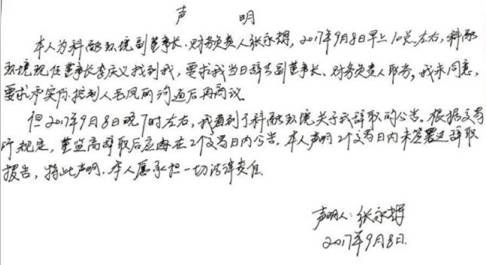 声 明
本人为科融环境副董事长、财务负责人张永辉，2017年9月8日早上10点左右，科融
环境现任董事长李庆义找到我，要求我当日辞去副董事长、财务负责人职务，我未同意，
要求与实际控制人毛凤丽沟通后再商议。
但2017年9月8日晚7时左右，我看到了科融环境关于我辞职的公告。根据交易
所规定，董监高辞职后应当在2个交易日内公告。本人声明2个交易日内未签署过辞职
报告，特此声明。本人愿承担一切法律责任
声明人：张永辉
2017年9月8日